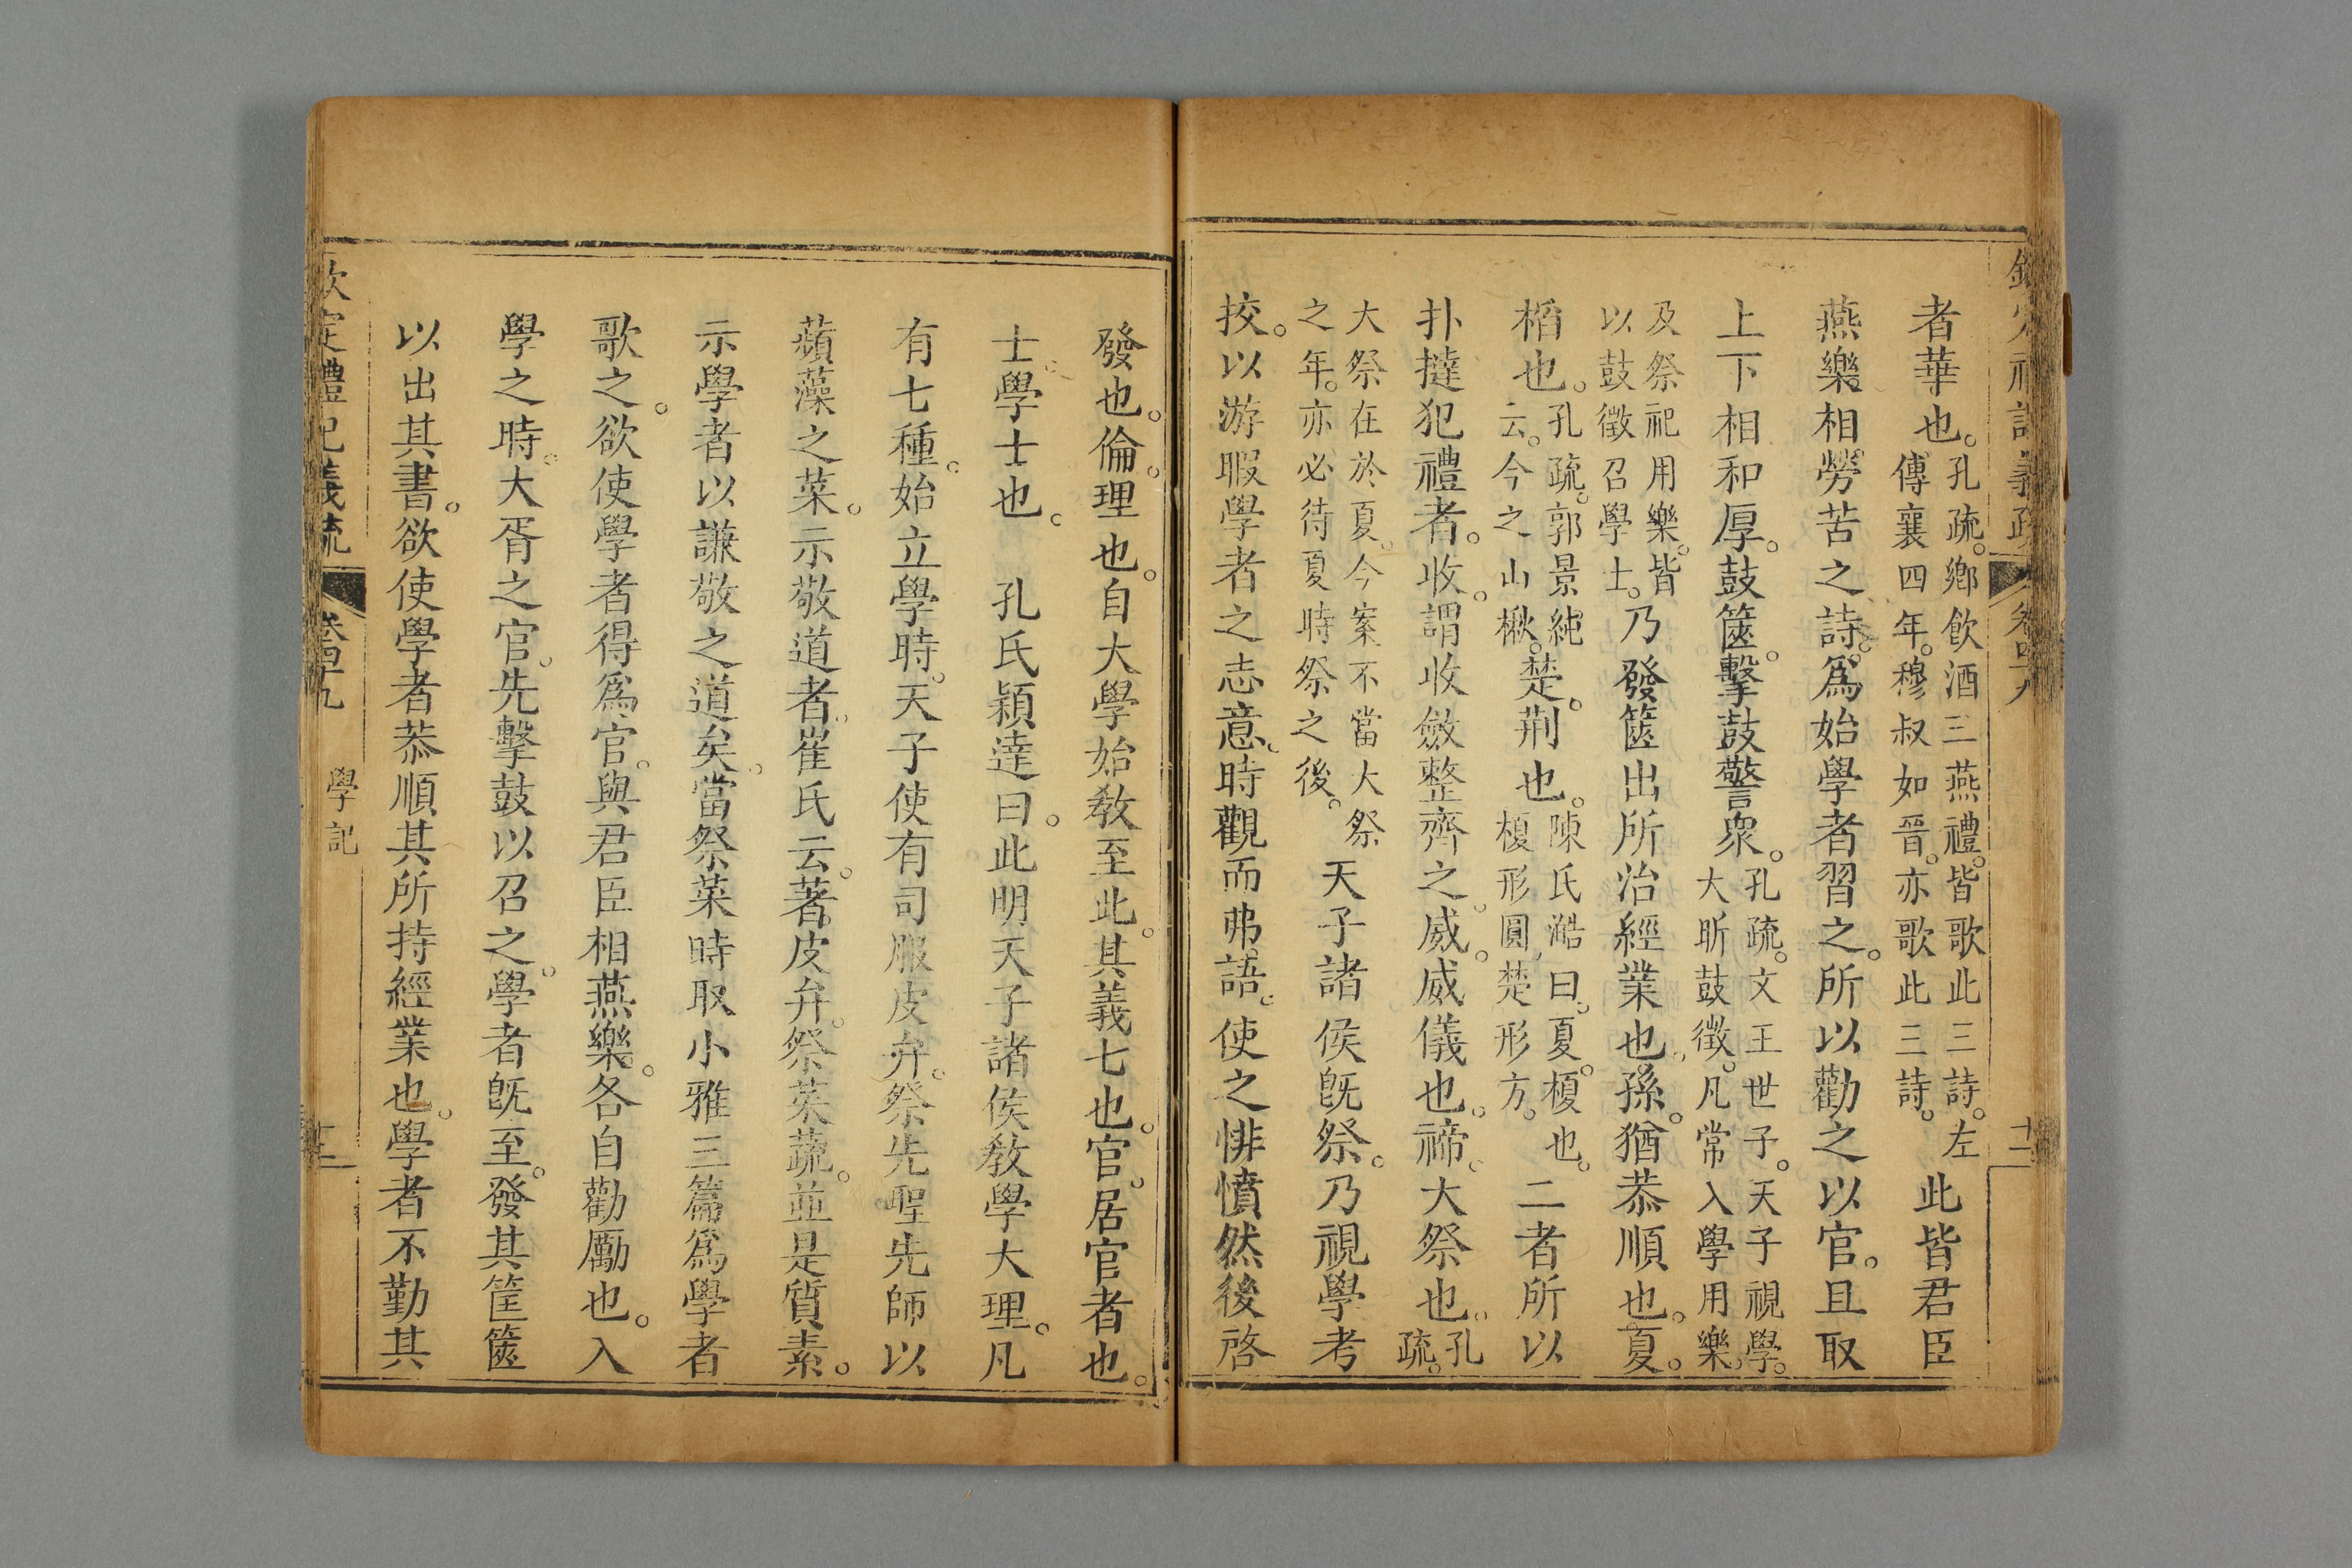 者華也。孔疏。鄉飲酒三燕禮。皆歌此三詩。左傳襄四年。穆叔如晉。亦歌此三詩。此皆君臣
燕樂相勞苦之詩。爲始學者習之。所以勸之以官。且取
上下相和厚。鼓篋。擊鼓警衆。孔疏。文王世子。天子視學。大昕鼓徵。凡常入學用樂。
及祭祀用樂。皆以鼓徵召學士。乃發篋出所治經業也。孫。猶恭順也。夏。
槄也。孔疏。郭景純云。今之山楸。楚。荆也。陳氏澔曰。夏。榎也。榎形圓。楚形方。二者所以
扑撻犯禮者。收。謂收斂整齊之。威。威儀也。禘。大祭也。孔疏。
大祭在於夏。今案不當大祭之年。亦必待夏時祭之後。天子諸侯旣祭。乃視學考
挍。以游暇學者之志意。時觀而弗語。使之悱憤然後啓
發也。倫。理也。自大學始敎至此。其義七也。官。居官者也。
士。學士也。 孔氏穎達曰。此明天子諸侯敎學大理。凡
有七種。始立學時。天子使有司服皮弁。祭先聖先師以
蘋藻之菜。示敬道者。崔氏云。著皮弁。祭菜蔬。並是質素。
示學者以謙敬之道矣。當祭菜時取小雅三篇爲學者
歌之。欲使學者得爲官。與君臣相燕樂。各自勸勵也。入
學之時。大胥之官。先擊鼓以召之。學者旣至。發其筐篋
以出其書。欲使學者恭順其所持經業也。學者不勤其
欽定禮記義疏 卷四十九 學記 十二